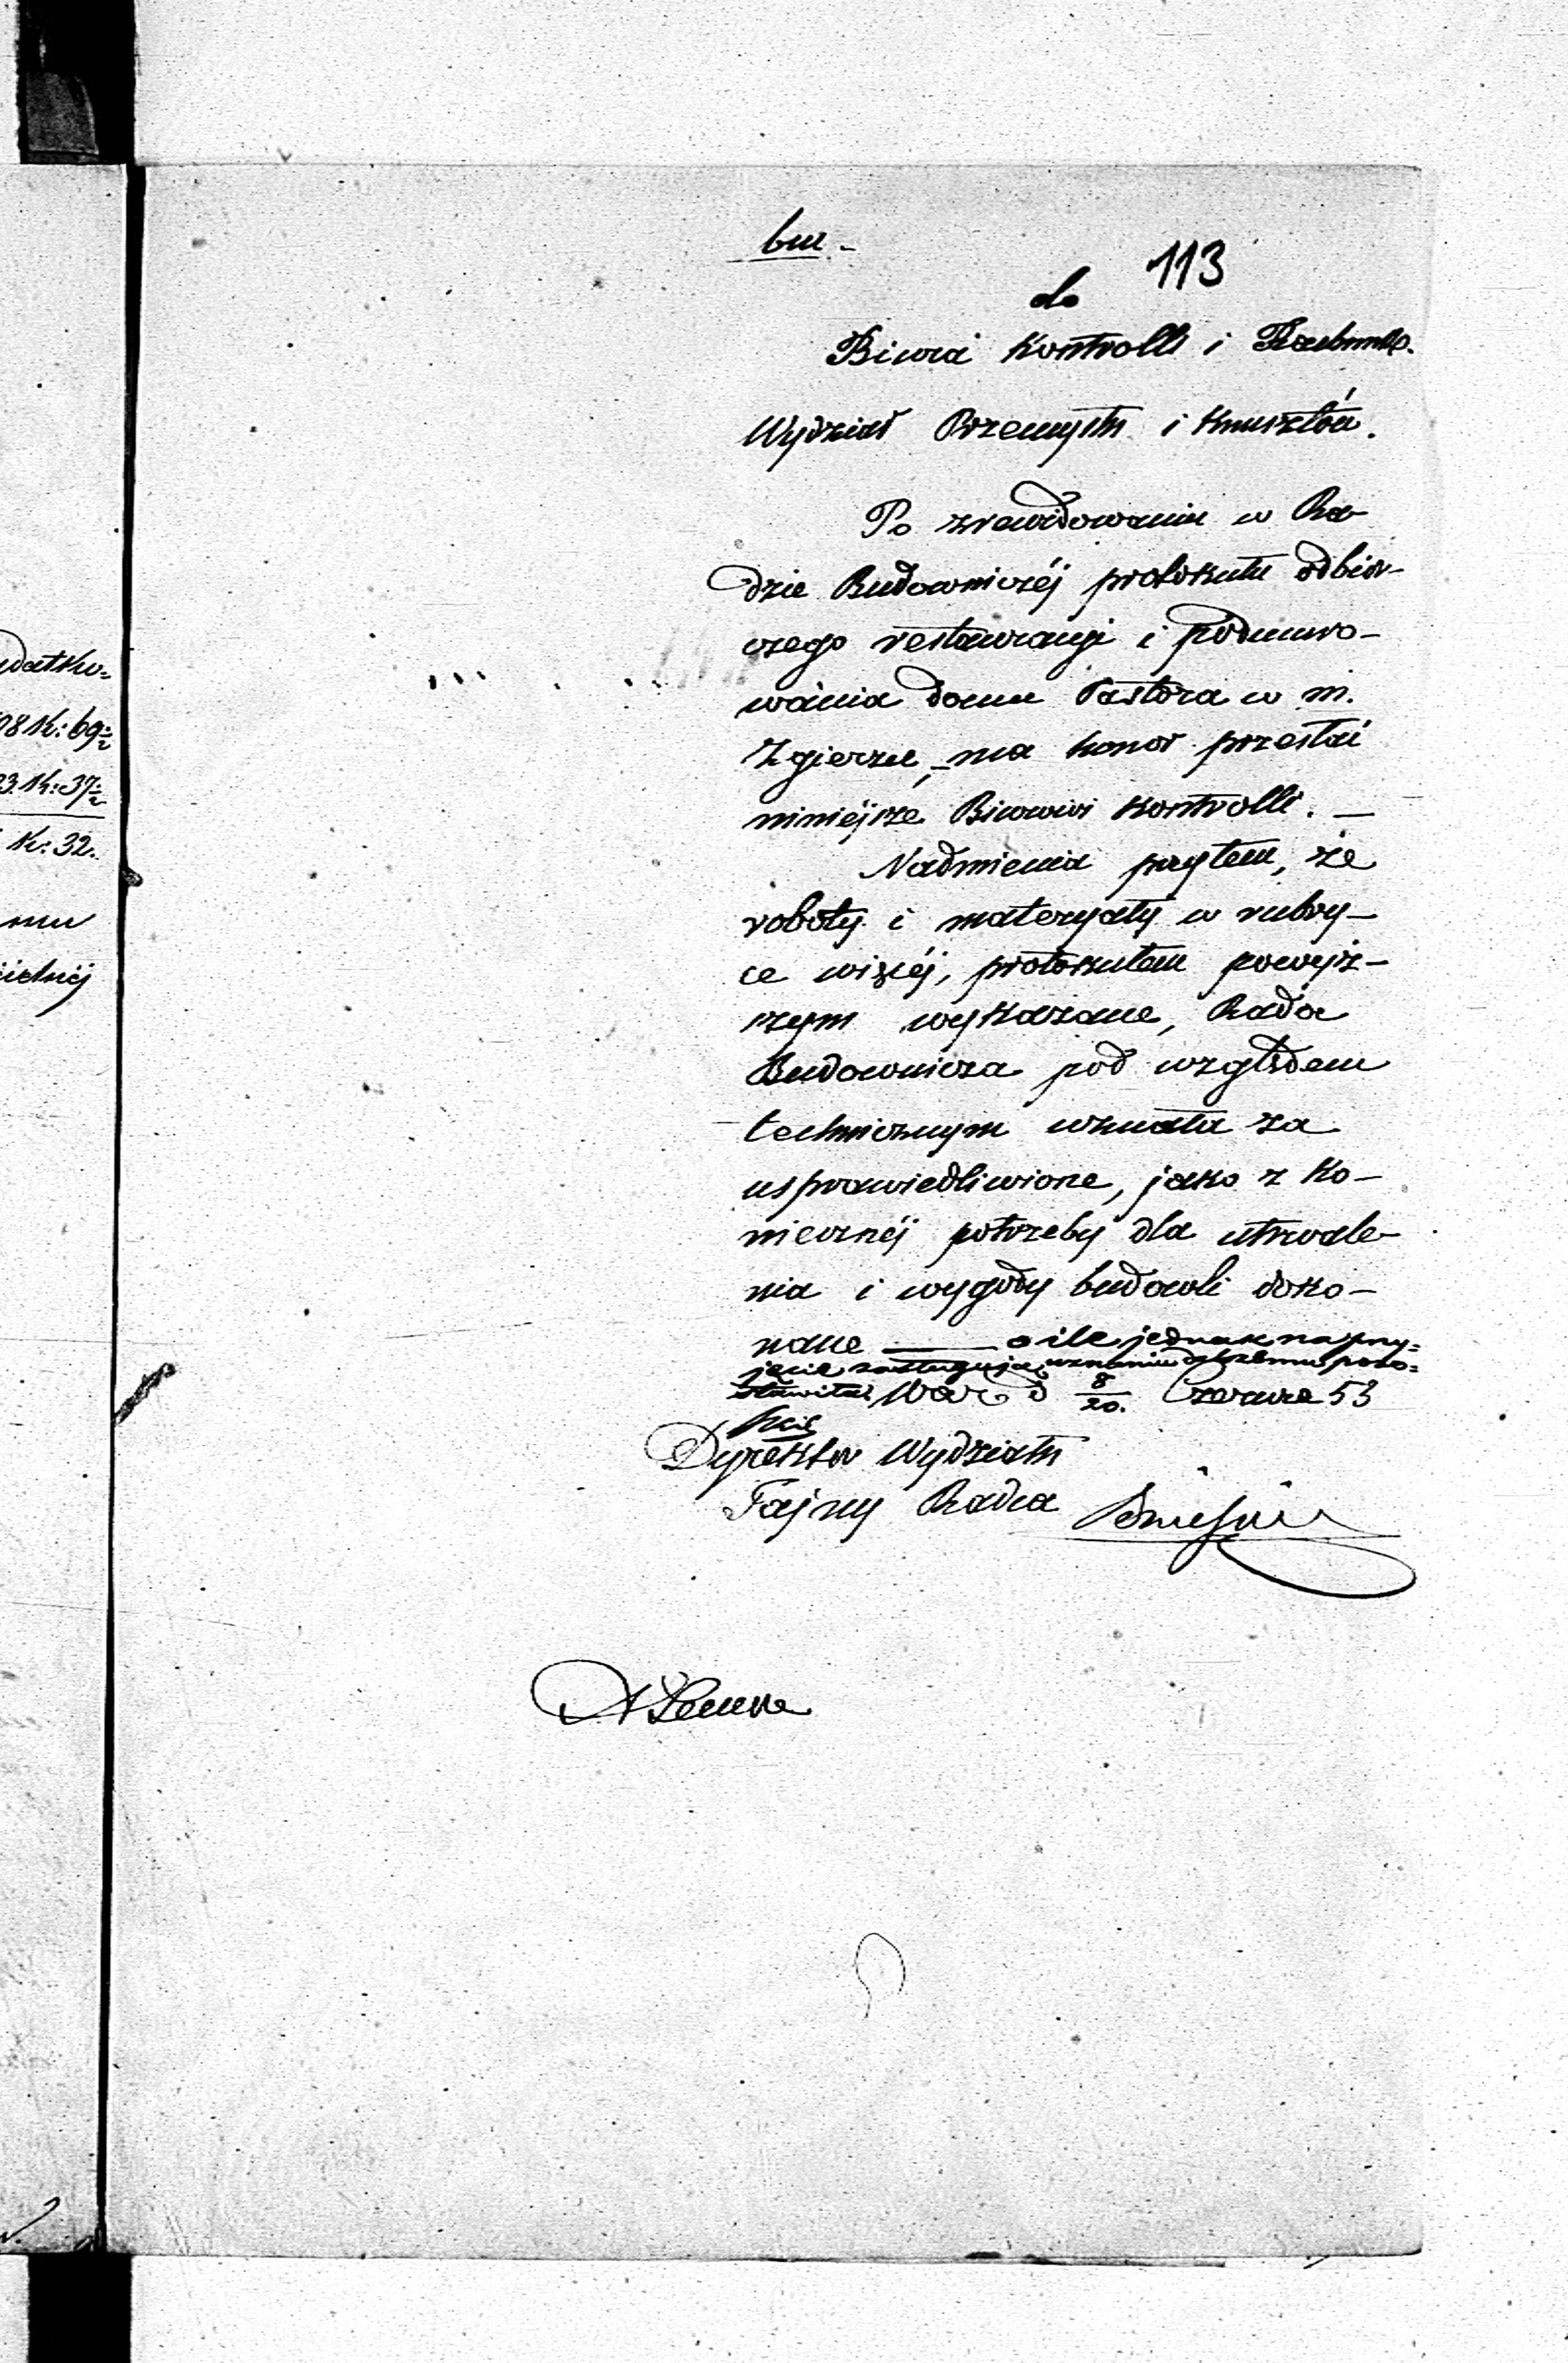 datko=
98 K: 69½
3. K: 37½
K: 32.
mu
113
do
Biura Kontrolli i
Wydział Przemysłu i Kunsztów.
Po zrewidowaniu w Ra-
dzie Budowniczéj protokułu odbior-
czego restauracyi i podmuro-
wania domu Pastora w m.
Zgierzu, ma honor przesłać
niniéjsze Biurowi Kontrolli. —
Nadmienia przytem, że
roboty i materyały w rubry-
ce więcéj, protokułem powyż-
szym wykazane, Rada
Budownicza pod względem
technicznym uznała za
usprawiedliwione, jako z Ko-
niecznéj potrzeby dla utrwale-
nia i wygody budowli doko-
nane — o ile jednak na przy=
jęcie zasługują, uznaniu dalszemu pozo=
stawiła. War d 8/20. Czerwca 53
Dyrektor Wydziału
Tajny Radca